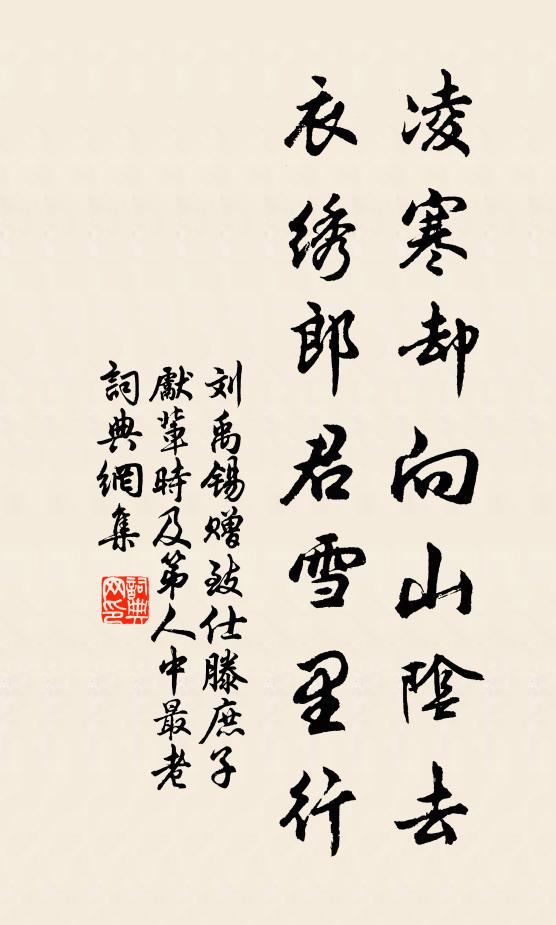 凌寒却向山陰去
衣绣郎君雪里行
刘禹锡赠致仕滕庶子
獻輩時及第人中最老
詞典網集
詞典網印